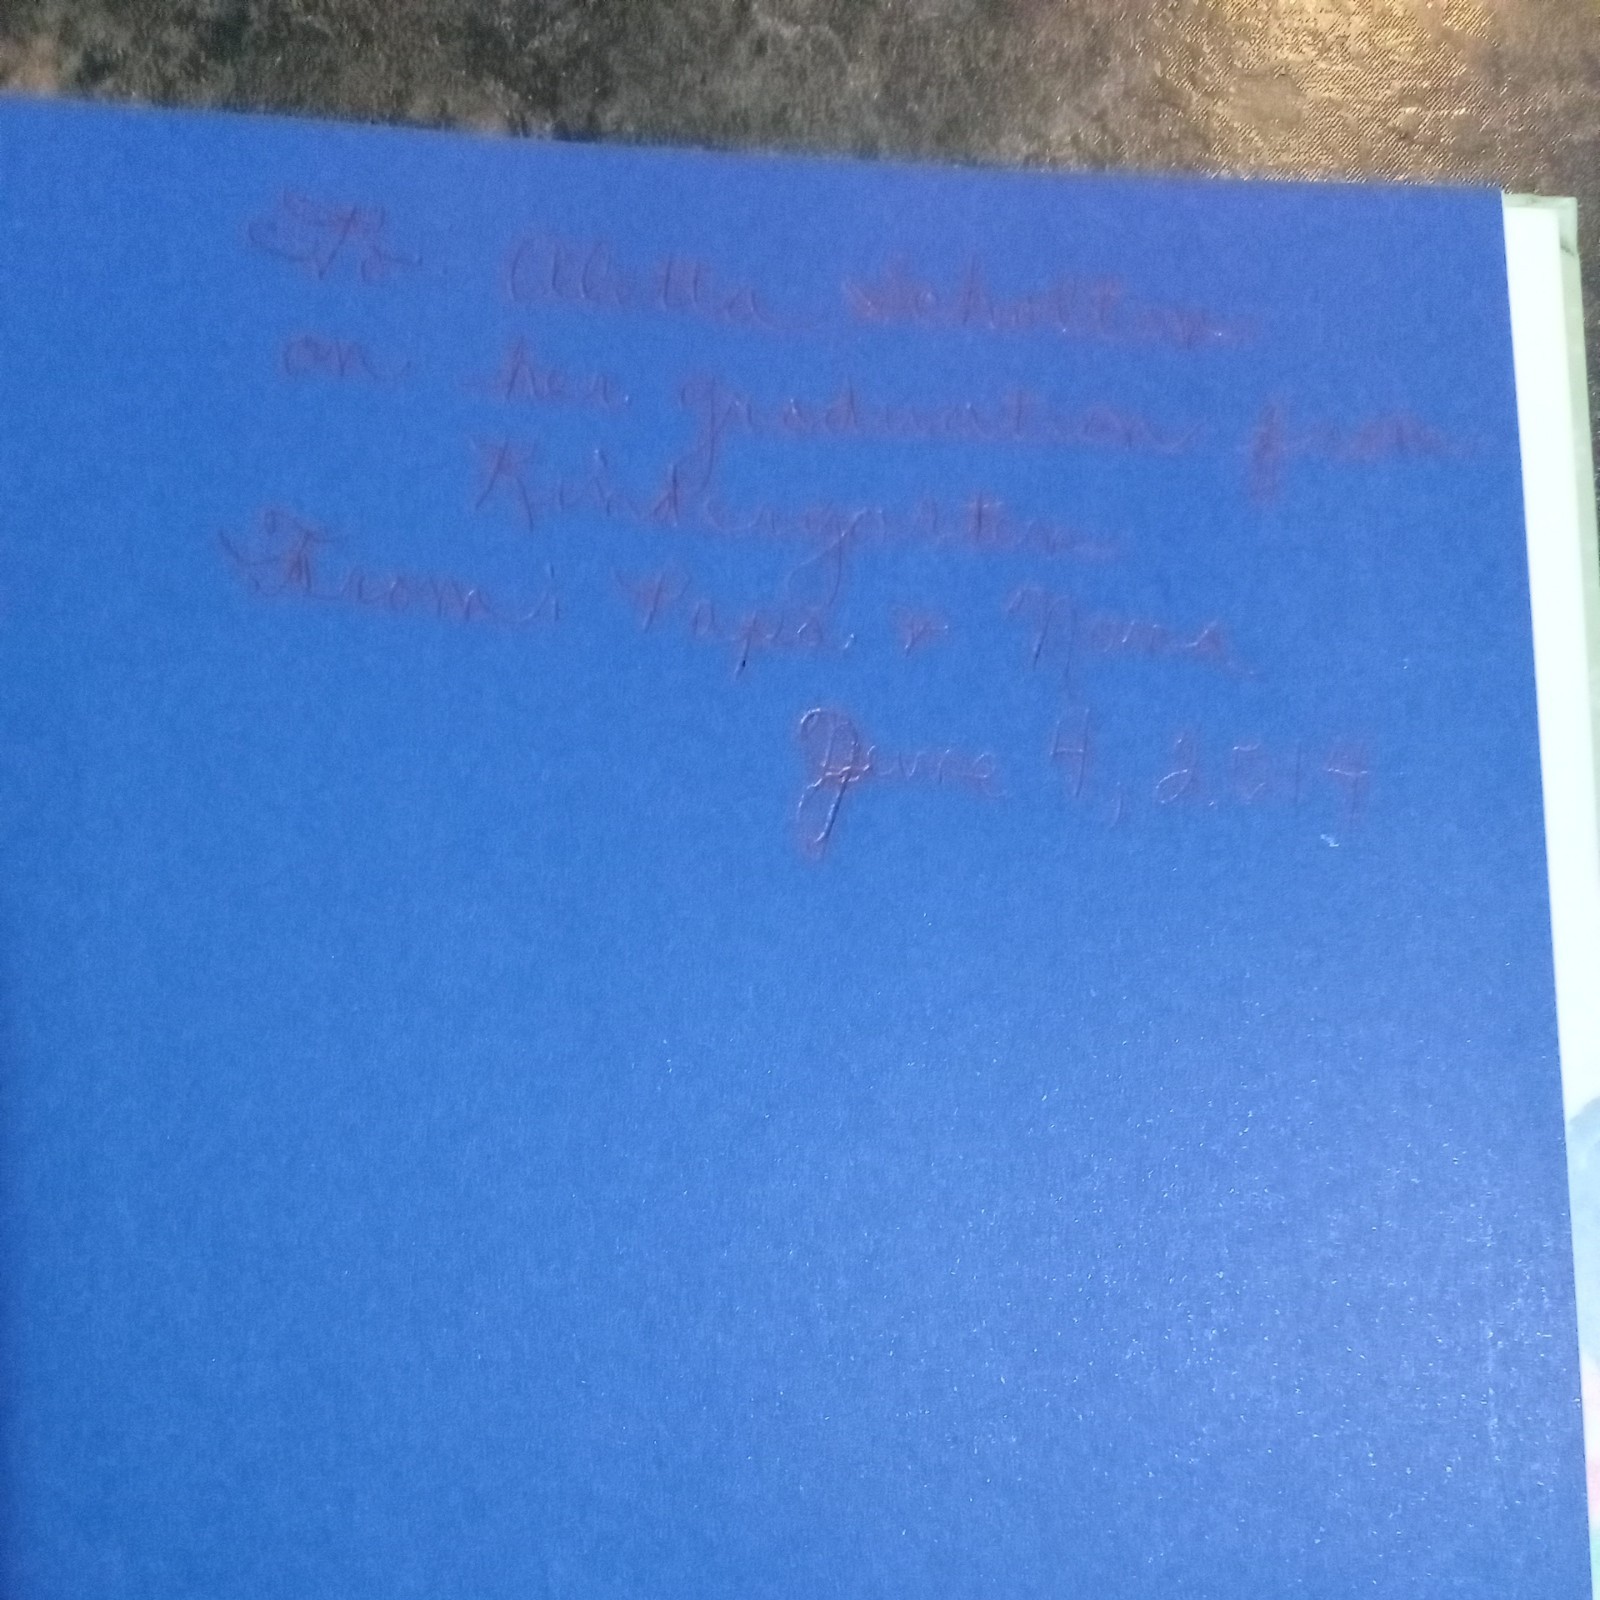 To Aletta Scholten
on her graduation from
Kindergarten
From: Papa & Nana
June 4, 2014